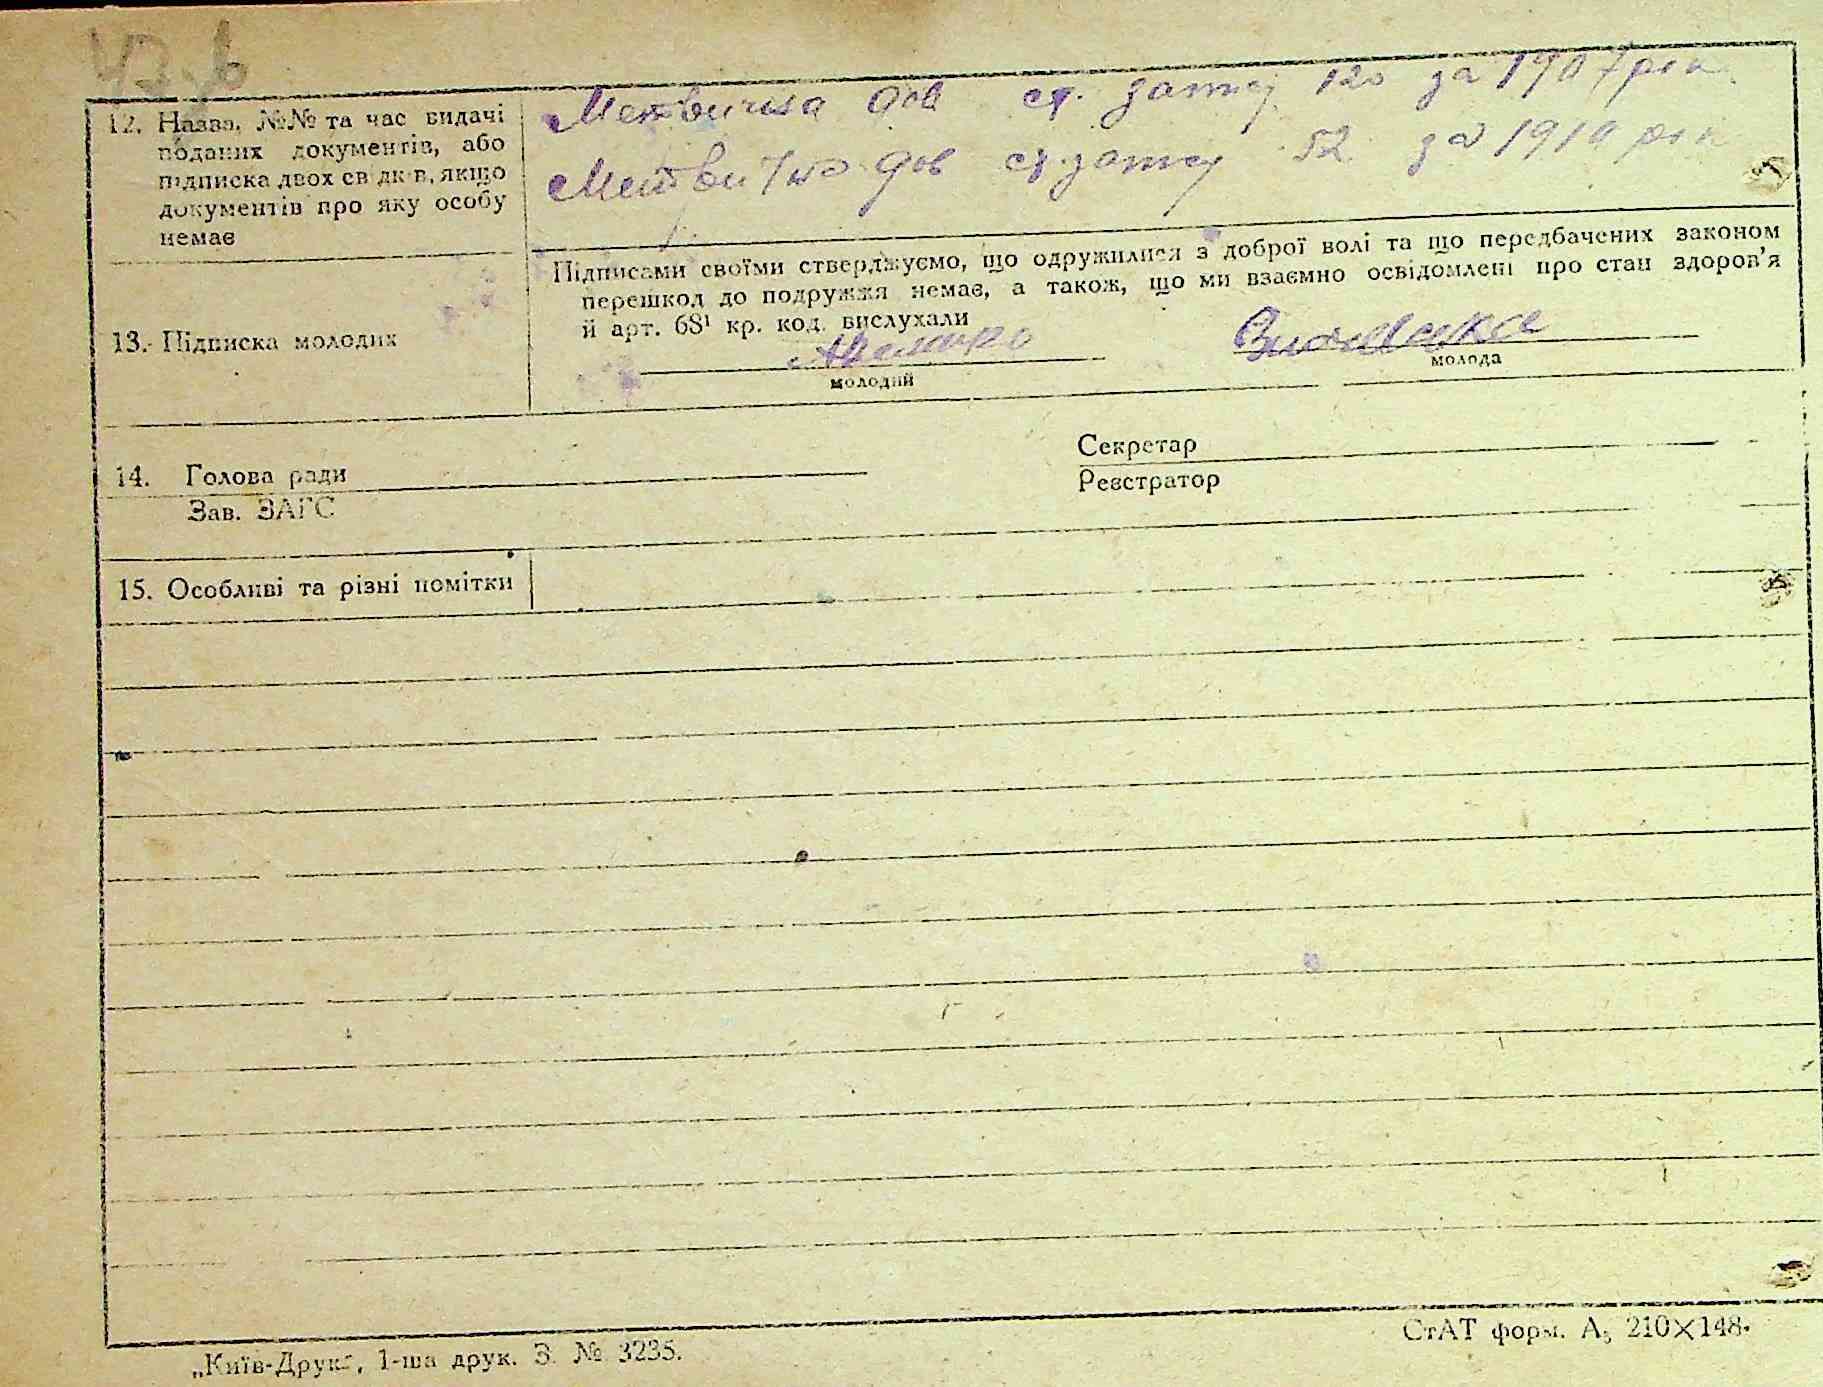 47.в
12. Назва, №№ та час видачі
поданих документів, або
підписка двох св дк в, якщо
документів про яку особу
немає
Метрична дов ст. запису 120 за 1907 рік
Метрична дов ст. запису 52 за 1910 рік
13. Підписка молодих
Підписами своїми стверджуємо, що одружилися з доброї волі та що передбачених законом
перешкод до подружжя немає, а також, що ми взаємно освідомлені про стан здоров'я
й арт. 68¹ кр. код. вислухали
молодий
молода
14. Голова ради
Зав. ЗАГС
Секретар
Реєстратор
15. Особливі та різні помітки
„Київ-Друк", 1-ша друк. З. № 3235.
СтАТ форм. А5 210×148.